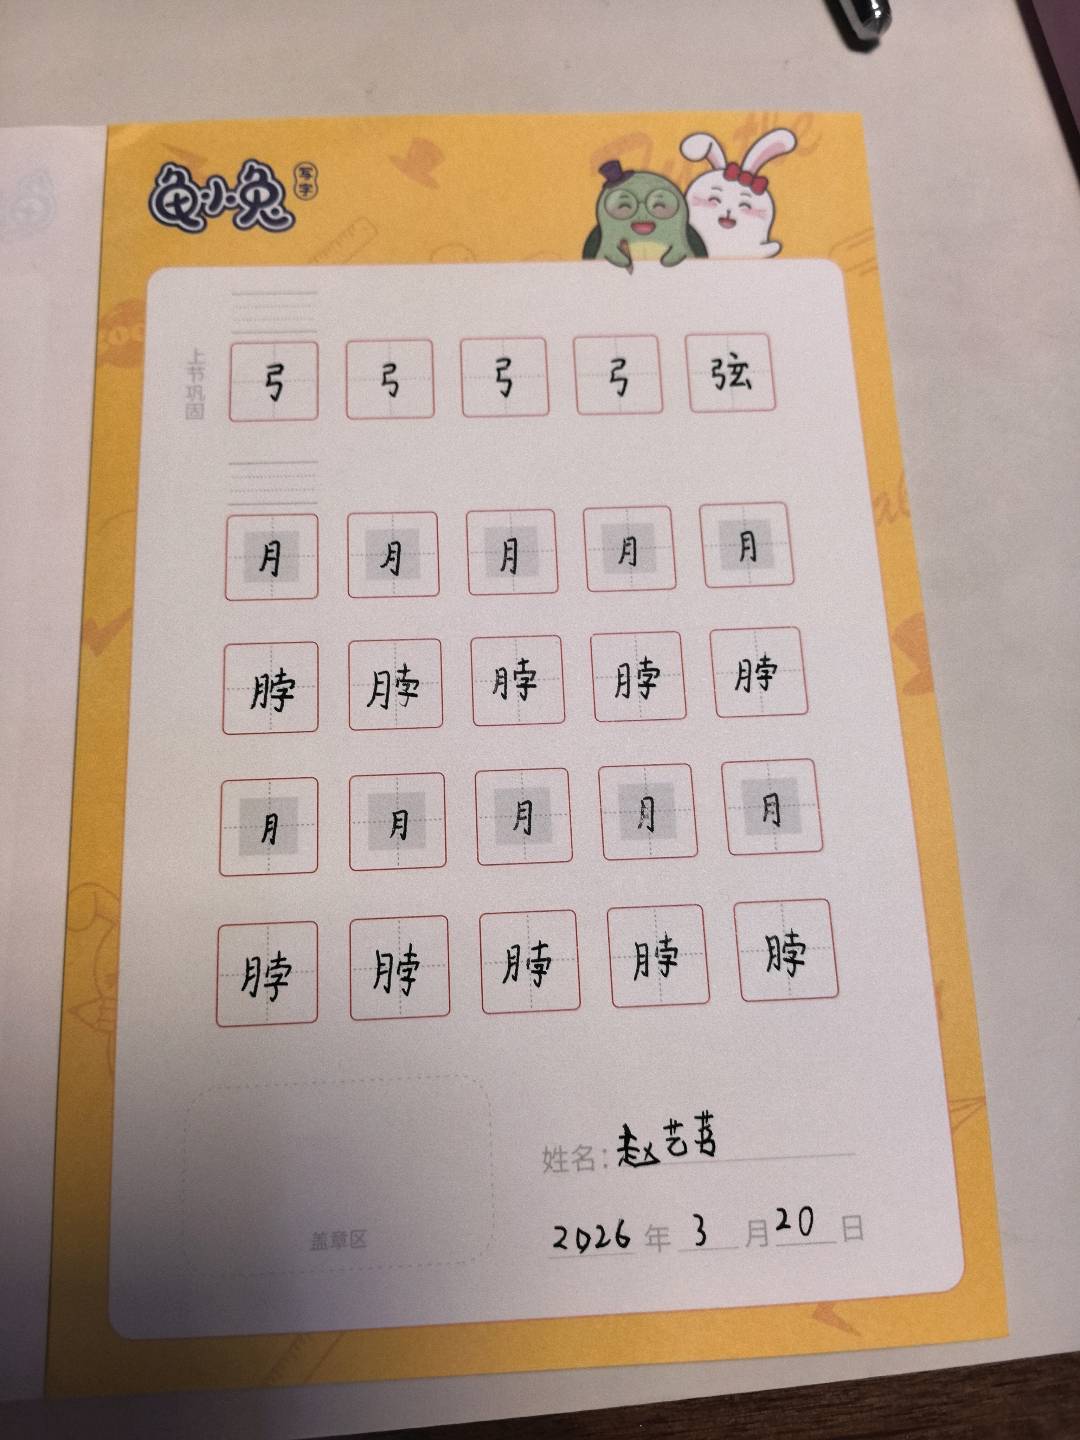 龟小兔写字
上节巩固
弓 弓 弓 弓 弦
月 月 月 月 月
脖 脖 脖 脖 脖
月 月 月 月 月
脖 脖 脖 脖 脖
姓名：赵艺
盖章区
2026 年 3 月 20 日